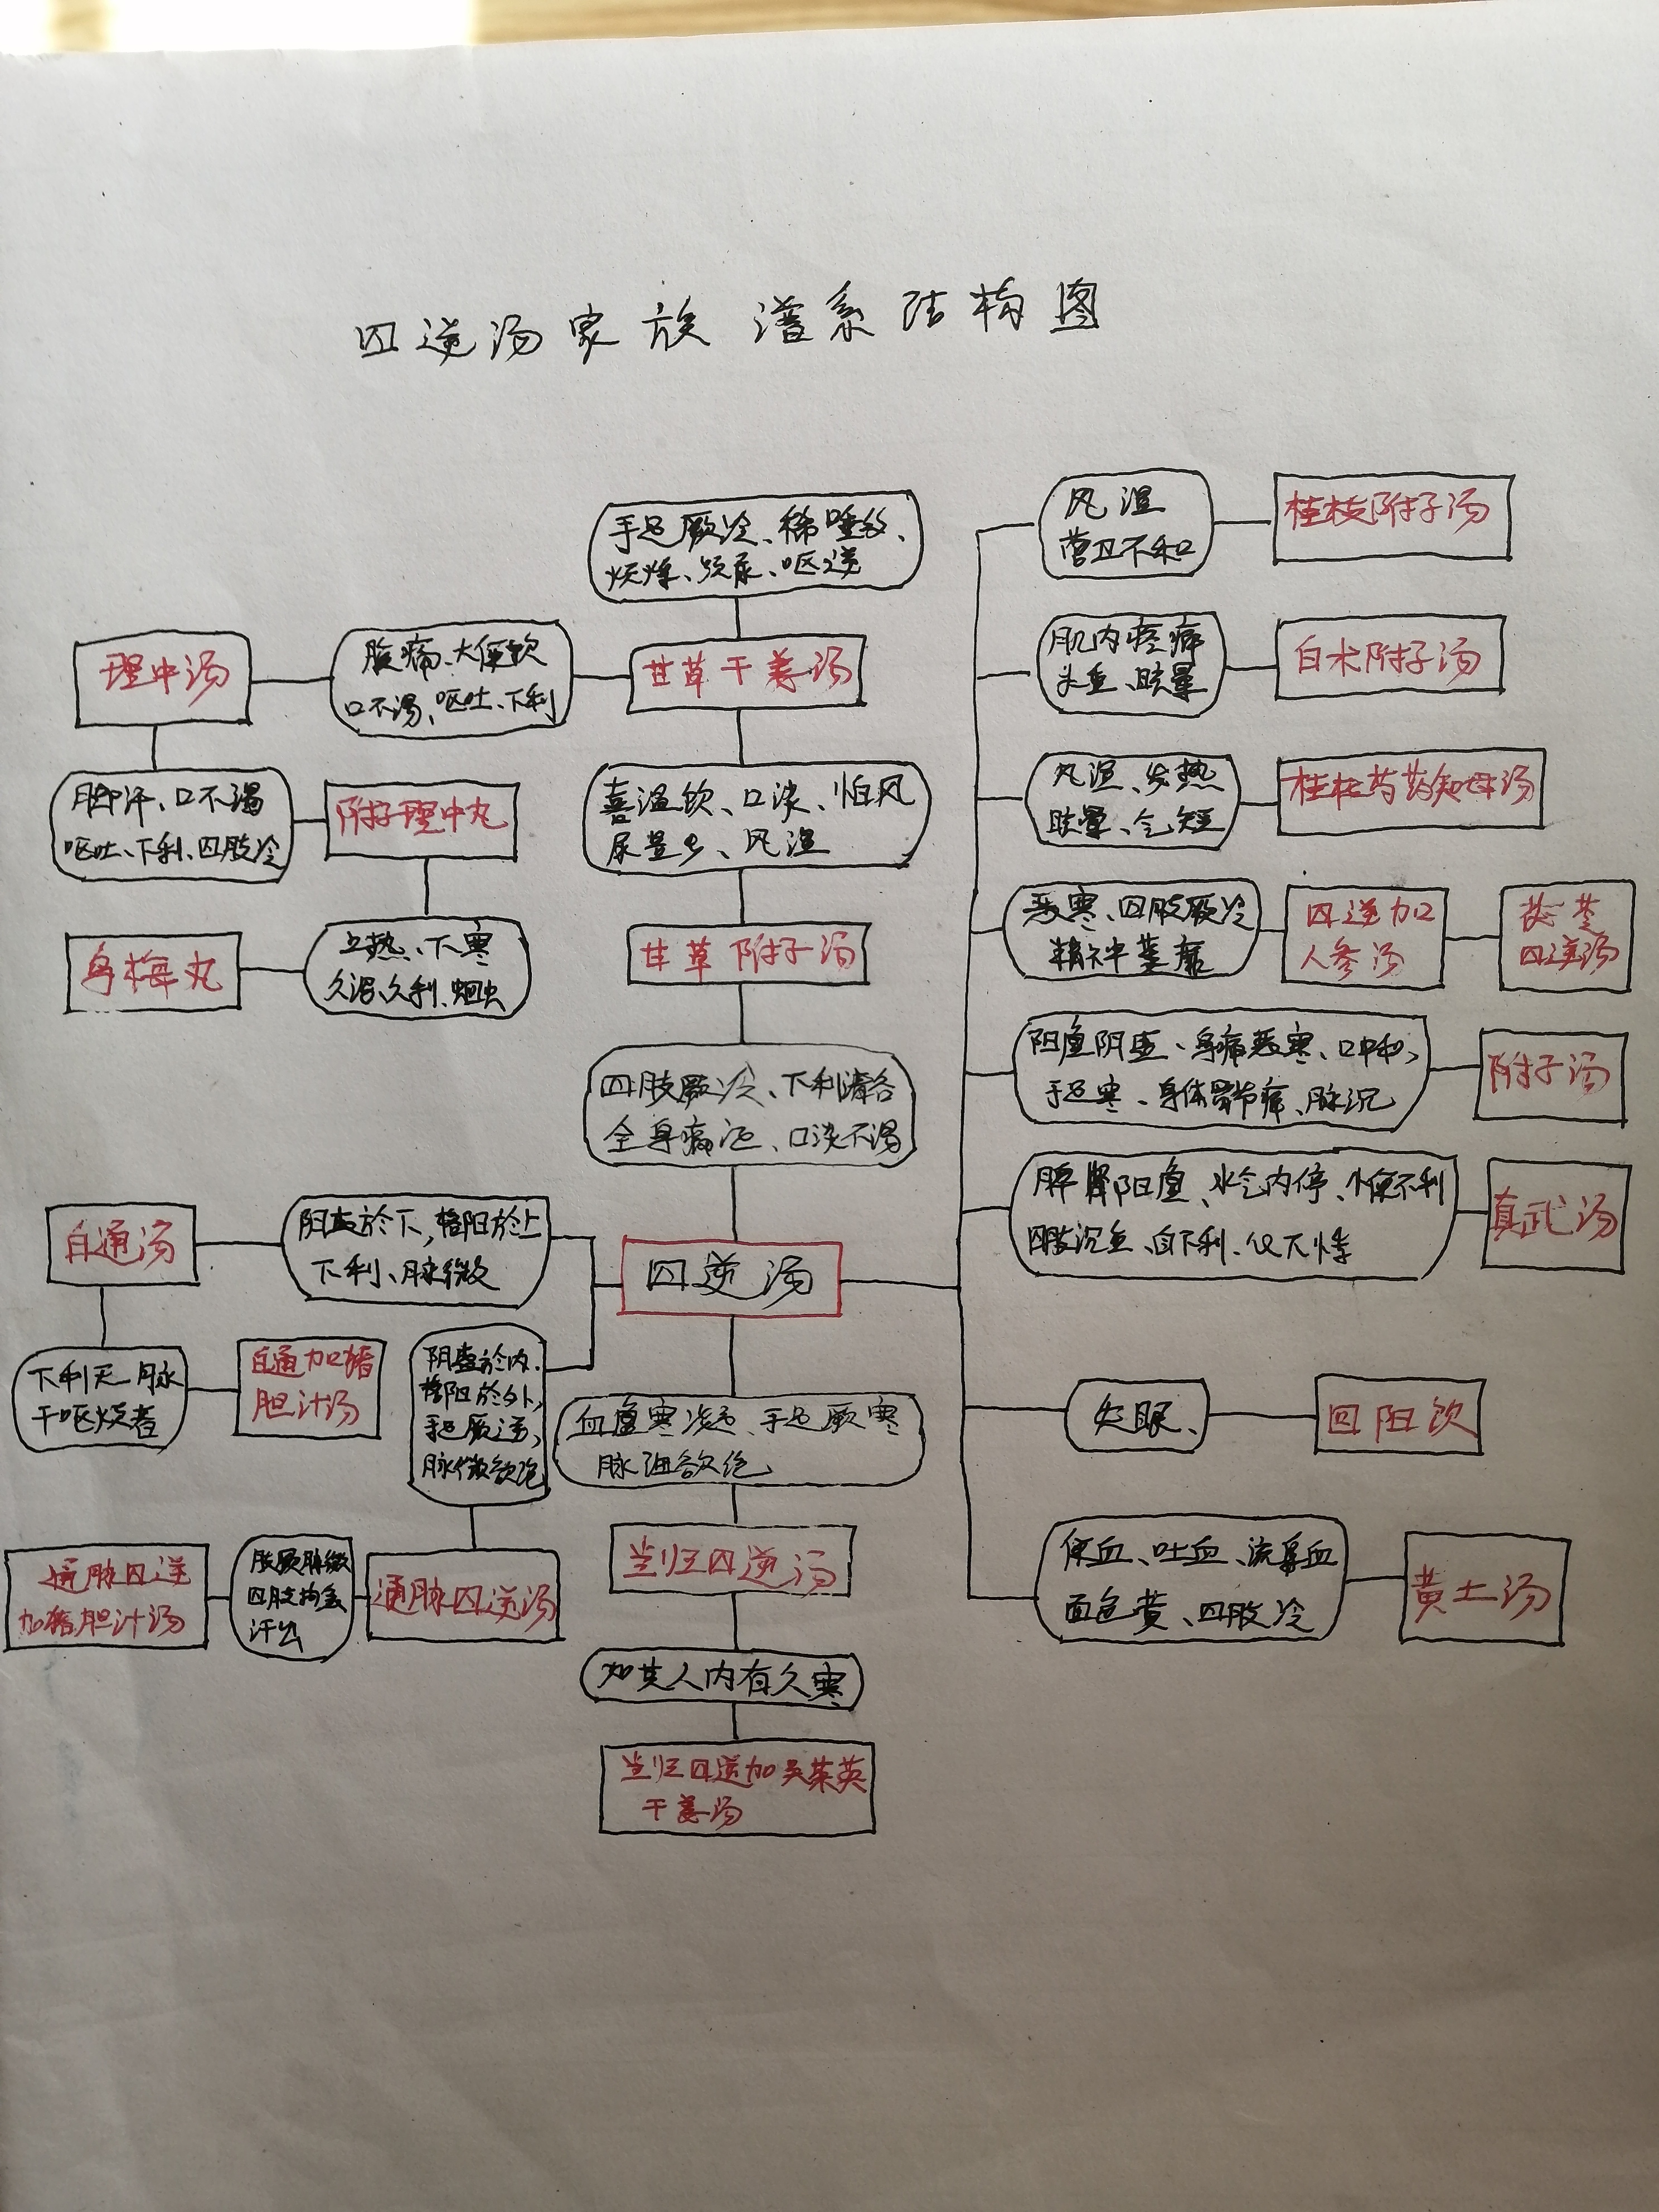 四逆汤家族谱系结构图
手足厥冷、稀唾多、
烦燥、频尿、呕逆
甘草干姜汤
腹痛、大便软
口不渴、呕吐、下利
理中汤
脚汗、口不渴
呕吐、下利、四肢冷
附子理中丸
上热、下寒
久泻、久利、蛔虫
乌梅丸
喜温饮、口淡、怕风
尿量少、风湿
甘草附子汤
四肢厥冷、下利清谷
全身痛、口淡不渴
四逆汤
阴盛於下,格阳於上
下利、脉微
白通汤
下利无脉
干呕烦者
白通加猪
胆汁汤
阴盛於内、
格阳於外,
手足厥逆,
脉微欲绝
通脉四逆汤
肢厥脉微
四肢拘急
汗出
通脉四逆
加猪胆汁汤
血虚寒凝、手足厥寒
脉细欲绝
当归四逆汤
如其人内有久寒
当归四逆加吴茱萸
干姜汤
风湿
营卫不和
桂枝附子汤
肌肉疼痛
头重、眩晕
白术附子汤
风湿、发热
眩晕、气短
桂枝芍药知母汤
恶寒、四肢厥冷
精神萎靡
四逆加
人参汤
茯苓
四逆汤
阳虚阴盛、身痛恶寒、口中和、
手足寒、身体骨节痛、脉沉
附子汤
脾肾阳虚、水气内停、小便不利
四肢沉重、自下利、
真武汤
失眠、
回阳饮
便血、吐血、流鼻血
面色黄、四肢冷
黄土汤